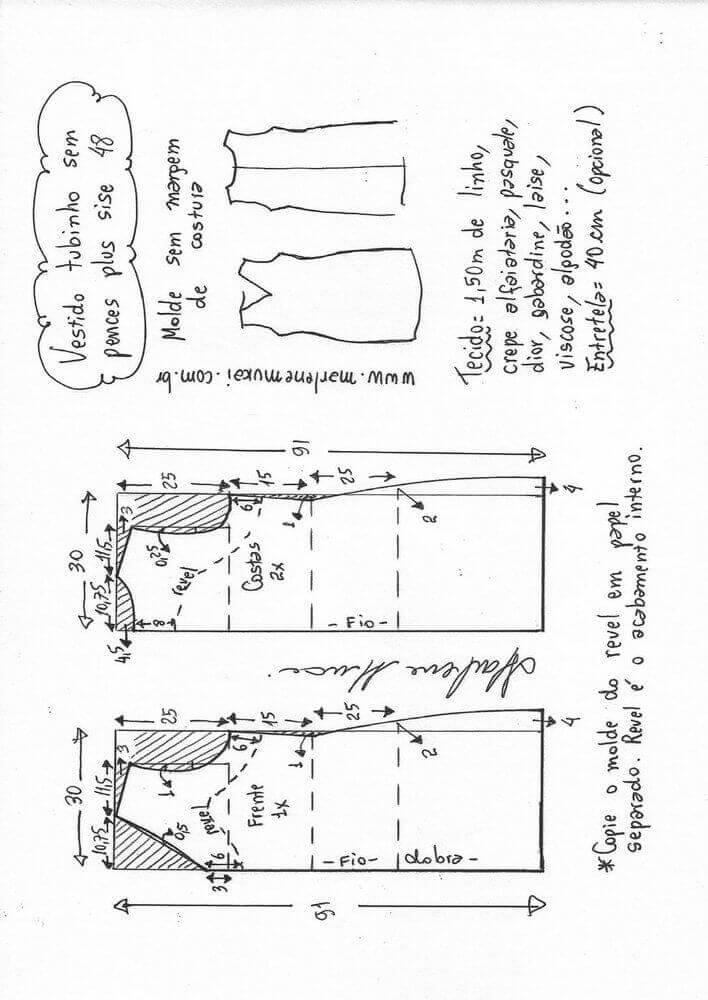 Vestido tubinho sem
pences plus sise 48
Molde sem margem
de costura
www.marlenemukai.com.br
Tecido= 1,50m de linho,
crepe alfaiataria, pasquale,
dior, gabardine, laise,
viscose, algodão...
Entretela= 40cm (opcional)
30
10,75
11,5
3
25
15
25
91
4,5
8
0,25
revel
6
Costas
2x
1
-Fio-
2
4
Marlene Mukai
30
10,75
11,5
3
25
15
25
91
0,5
1
revel
6
3
6
Frente
1x
1
-Fio-
dobra-
2
4
*Copie o molde do revel em papel
separado. Revel é o acabamento interno.